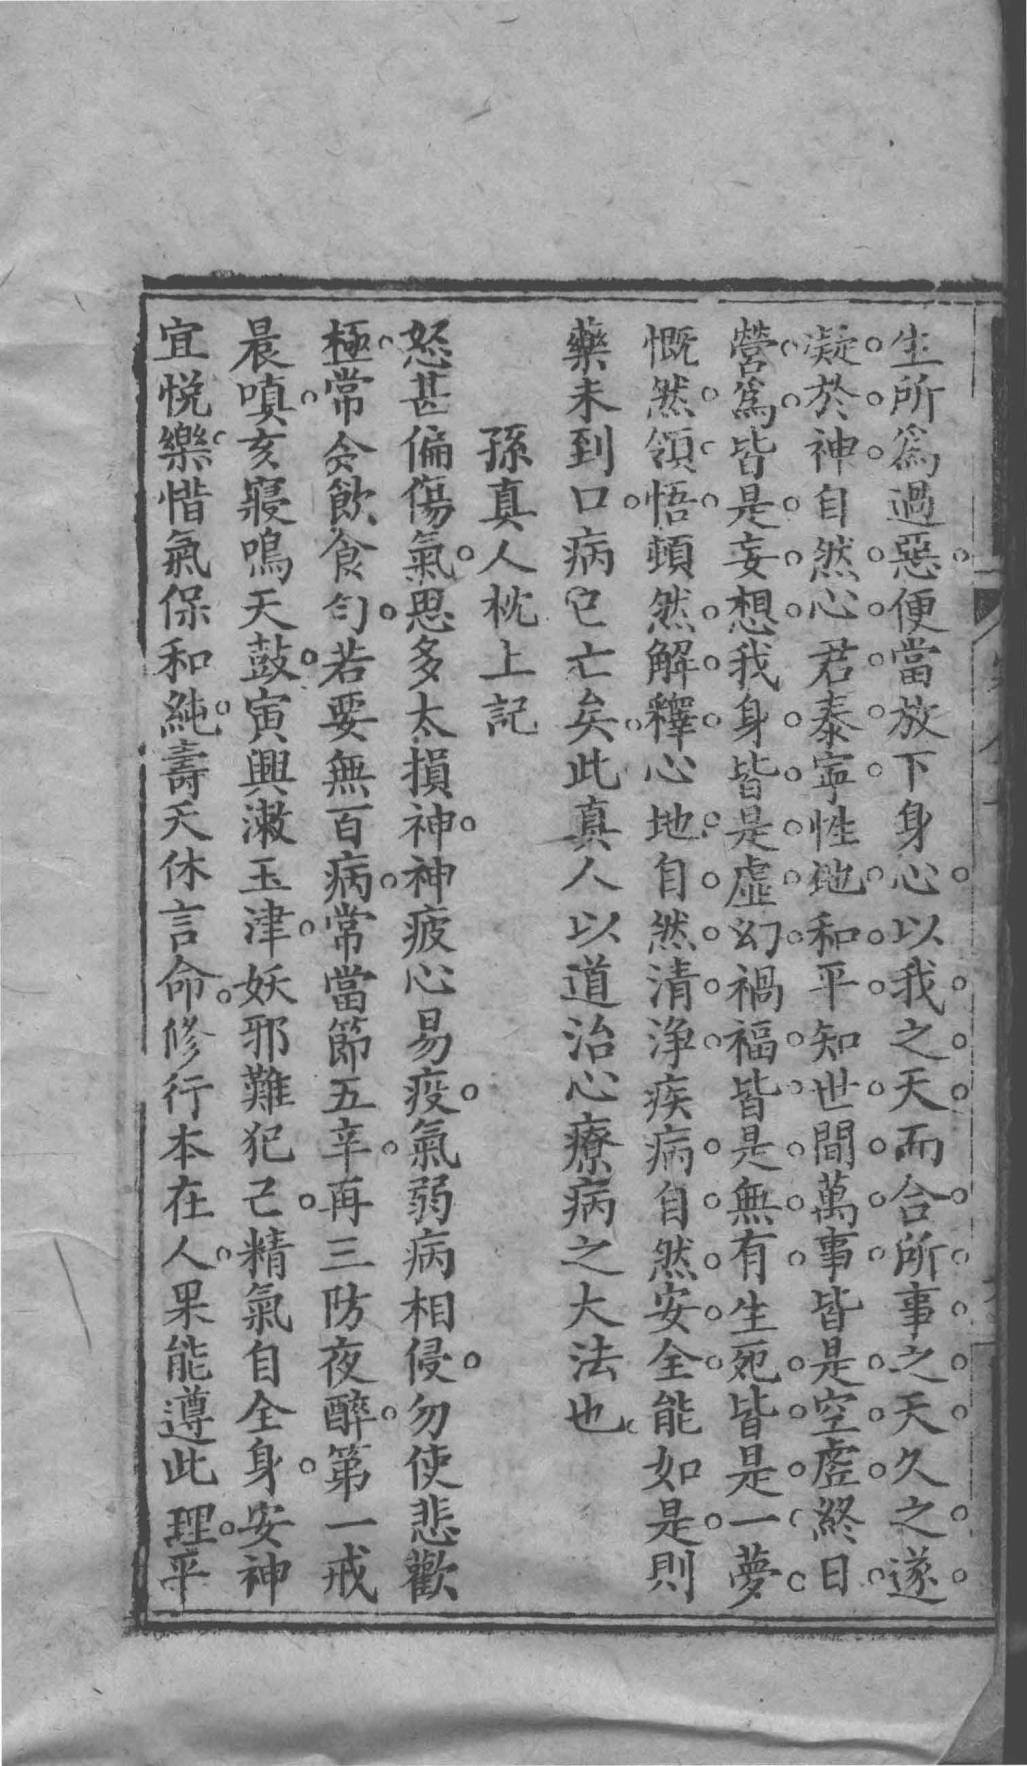 生所爲過惡便當放下身心以我之天而合所事之天久之遂
凝於神自然心君泰寧性地和平知世間萬事皆是空虛終日
營爲皆是妄想我身皆是虛幻禍福皆是無有生死皆是一夢
慨然領悟頓然解釋心地自然清淨疾病自然安全能如是則
藥未到口病已亡矣此真人以道治心療病之大法也
孫真人枕上記
怒甚偏傷氣思多太損神神疲心易疫氣弱病相侵勿使悲歡
極常令飲食勻若要無百病常當節五辛再三防夜醉第一戒
晨嗔亥寢鳴天鼓寅興漱玉津妖邪難犯己精氣自全身安神
宜悅樂惜氣保和純壽夭休言命修行本在人果能遵此理平